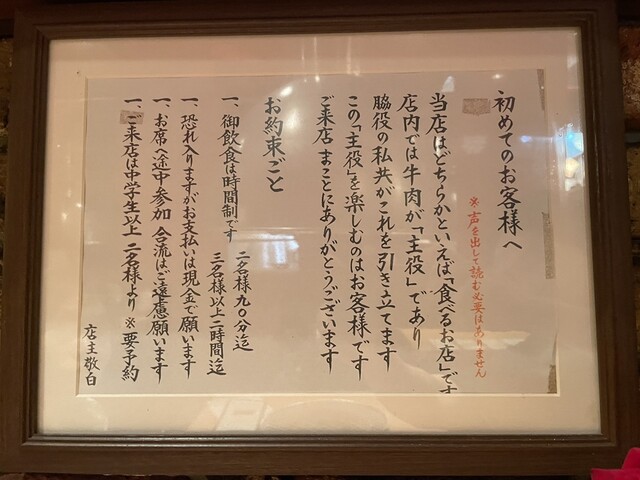 初めてのお客様へ
※声を出して読む必要はありません
当店はどちらかといえば「食べるお店」です
店内では牛肉が「主役」であり
脇役の私共がこれを引き立てます
この「主役」を楽しむのはお客様です
ご来店 まことにありがとうございます
お約束ごと
一、御飲食は時間制です
二名様九〇分迄
三名様以上二時間迄
一、恐れ入りますがお支払いは現金で願います
一、お席へ途中参加 合流はご遠慮願います
一、ご来店は中学生以上 二名様より ※要予約
店主敬白